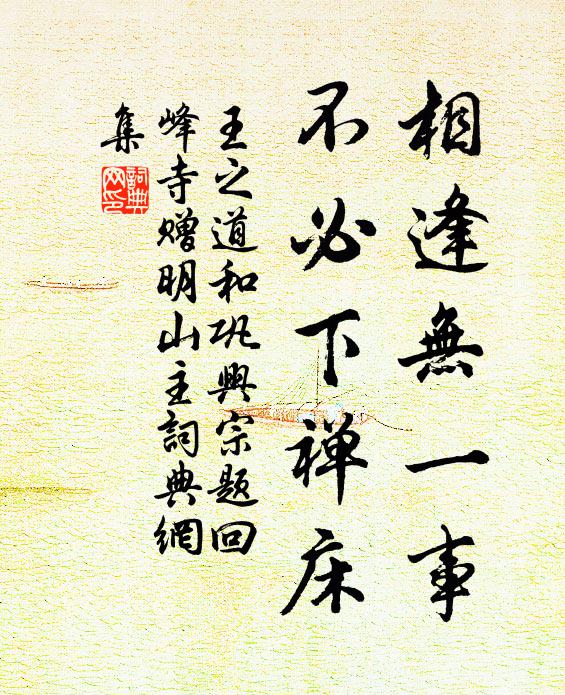 相逢無一事
不必下禅床
王之道和巩興宗題回
峰寺赠明山主詞典網
集
詞典
网印